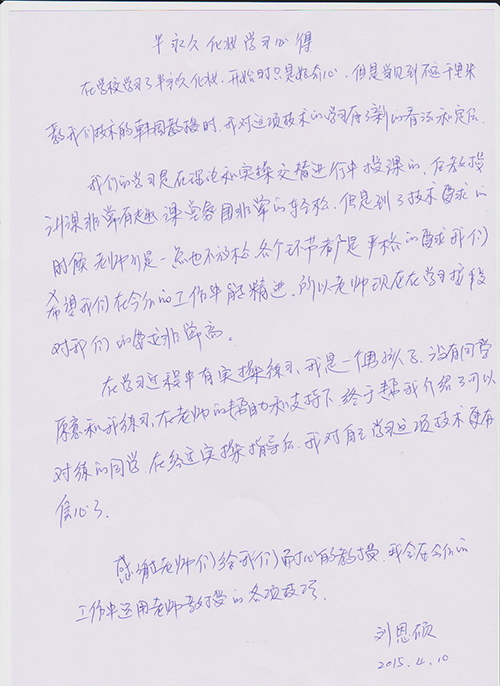 半永久化妆学习心得
在学校学习了半永久化妆，开始时只是好奇心，但是当见到不远千里来
教我们技术的韩国教授时，我对这项技术的学习有了新的看法和定位。
我们的学习是在理论和实操交替进行中授课的，任教授
讲课非常有趣课堂氛围非常的轻松，但是到了技术要求的
时候老师们是一点也不放松各个环节都是严格的要求我们
希望我们在今后的工作中能精进，所以老师现在在学习阶段
对我们的要求非常高。
在学习过程中有实操练习，我是一个男孩子，没有同学
愿意和我练习，在老师的帮助和支持下终于帮我介绍了可以
对练的同学，在经过实操指导后，我对自己学习这项技术更有
信心了。
感谢老师们给我们耐心的教授，我会在今后的
工作中运用老师教授的各项技巧。
刘恩硕
2015.4.10